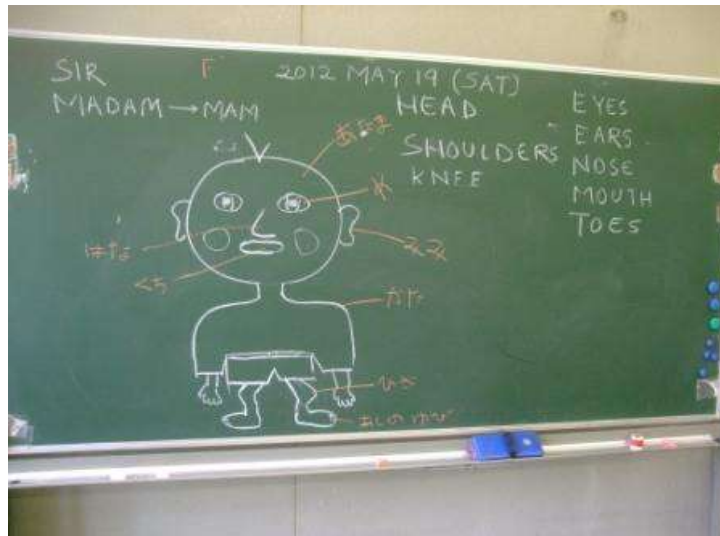 SIR
MADAM → MAM
2012 MAY 19 (SAT)
HEAD
SHOULDERS
KNEE
EYES
EARS
NOSE
MOUTH
TOES
あたま
め
はな
みみ
くち
かた
ひざ
あしのゆび